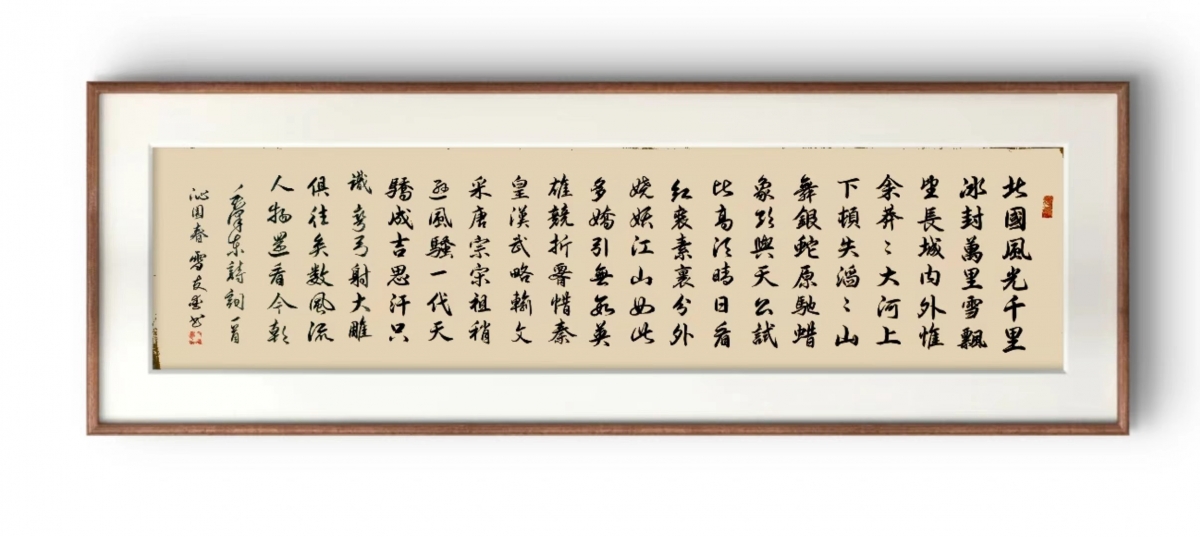 北國風光千里
冰封萬里雪飄
望長城内外惟
余莽〻大河上
下頓失滔〻山
舞銀蛇原馳蜡
象欲與天公試
比高須晴日看
紅裝素裹分外
嬈妖江山如此
多嬌引無數英
雄競折腰惜秦
皇漢武略輸文
采唐宗宋祖稍
遜風騷一代天
驕成吉思汗只
識彎弓射大雕
俱往矣數風流
人物還看今朝
毛澤東詩詞一首
沁園春雪友书